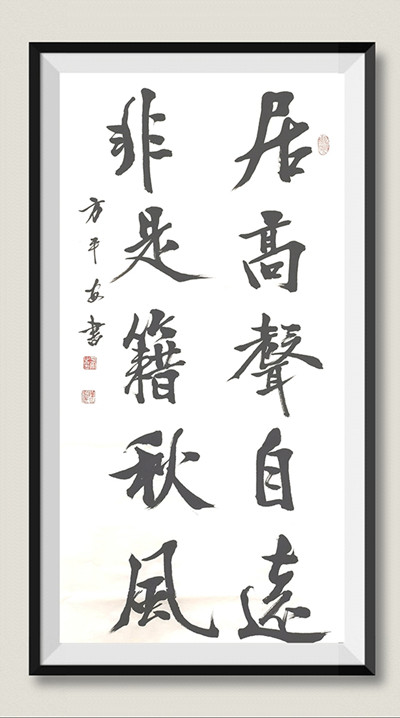 居高聲自遠
非是籍秋風
方平安書